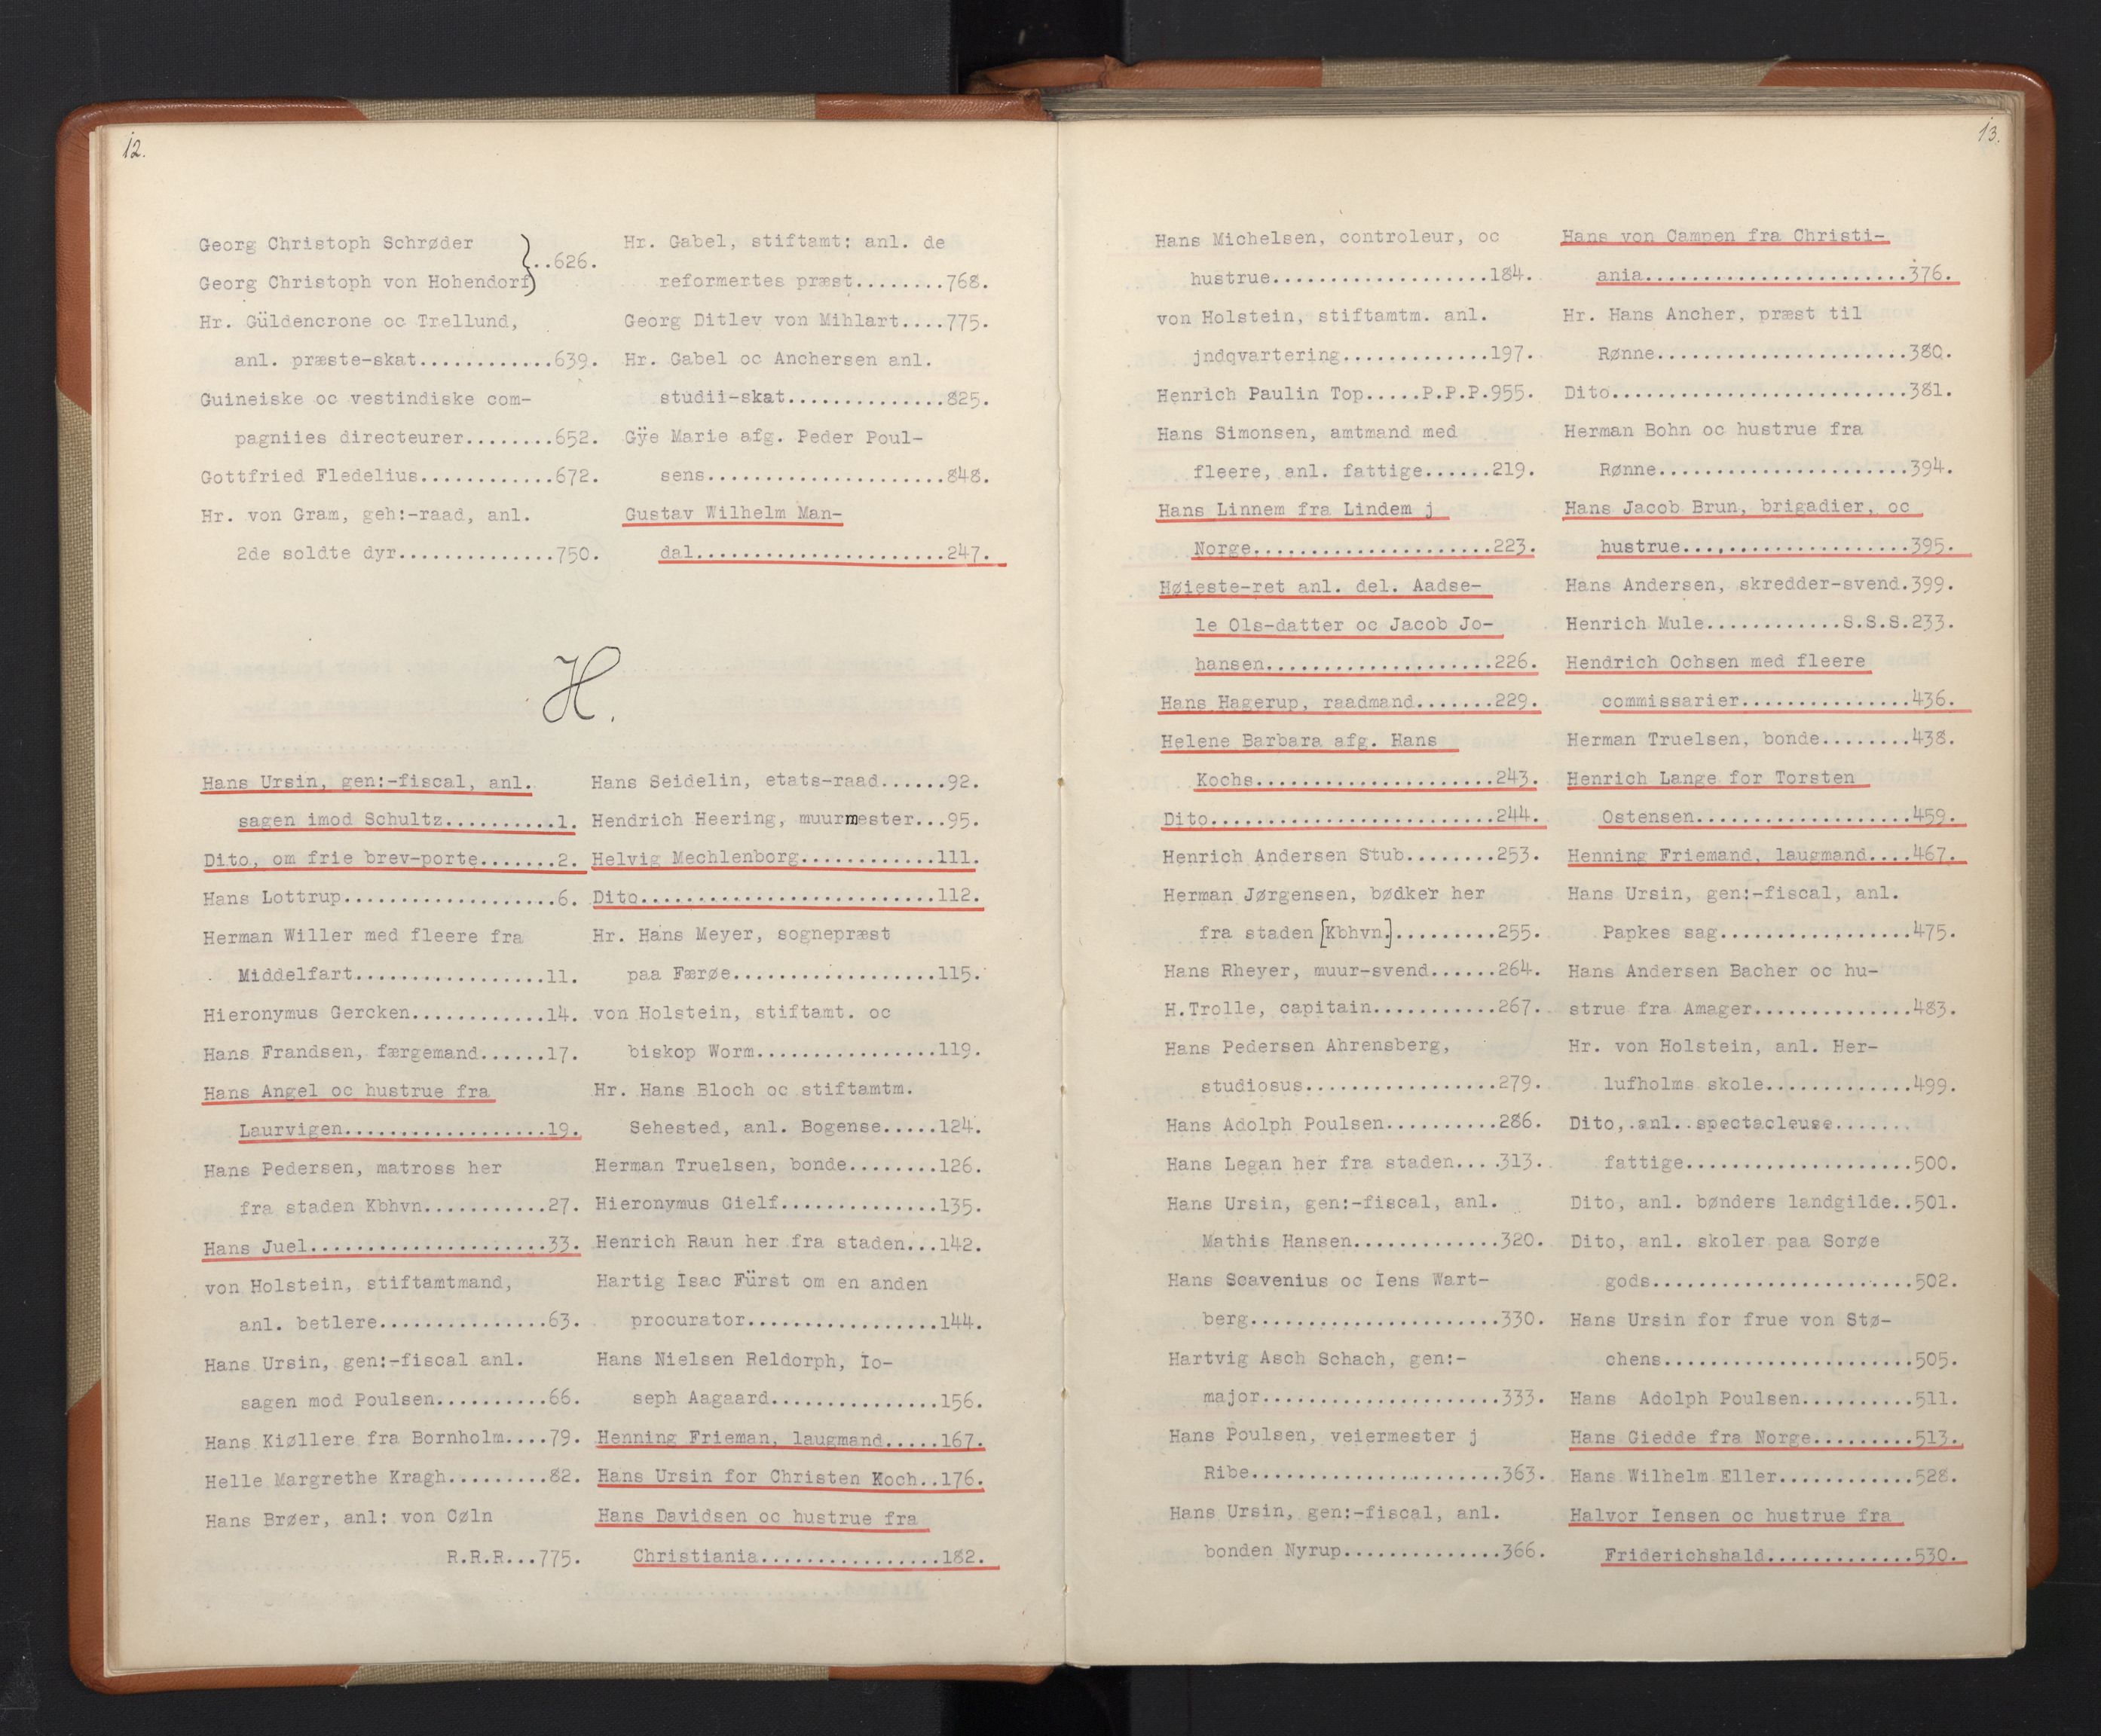 12.
Georg Christoph Schrøder
Georg Christoph von Hohendorf}..626.
Hr. Güldencrone oc Trellund,
anl. præste-skat............639.
Guineiske oc vestindiske com-
pagniies directeurer........652.
Gottfried Fledelius............672.
Hr. von Gram, geh:-raad, anl.
2de soldte dyr..............750.
Hr. Gabel, stiftamt: anl. de
reformertes præst........768.
Georg Ditlev von Mihlart....775.
Hr. Gabel oc Anchersen anl.
studii-skat..............825.
Gÿe Marie afg. Peder Poul-
sens.....................848.
Gustav Wilhelm Man-
dal......................247.
H.
Hans Ursin, gen:-fiscal, anl.
sagen imod Schultz..........1.
Dito, om frie brev-porte.......2.
Hans Lottrup...................6.
Herman Willer med fleere fra
Middelfart.................11.
Hieronymus Gercken............14.
Hans Frandsen, færgemand......17.
Hans Angel oc hustrue fra
Laurvigen..................19.
Hans Pedersen, matross her
fra staden Kbhvn...........27.
Hans Juel.....................33.
von Holstein, stiftamtmand,
anl. betlere...............63.
Hans Ursin, gen:-fiscal anl.
sagen mod Poulsen..........66.
Hans Kiøllere fra Bornholm....79.
Helle Margrethe Kragh.........82.
Hans Brøer, anl: von Cøln
R.R.R...775.
Hans Seidelin, etats-raad......92.
Hendrich Heering, muurmester...95.
Helvig Mechlenborg............111.
Dito..........................112.
Hr. Hans Meyer, sognepræst
paa Færøe..................115.
von Holstein, stiftamt. oc
biskop Worm................119.
Hr. Hans Bloch oc stiftamtm.
Sehested, anl. Bogense.....124.
Herman Truelsen, bonde........126.
Hieronymus Gielf..............135.
Henrich Raun her fra staden...142.
Hartig Isac Fürst om en anden
procurator.................144.
Hans Nielsen Reldorph, Io-
seph Aagaard...............156.
Henning Frieman, laugmand.....167.
Hans Ursin for Christen Koch..176.
Hans Davidsen oc hustrue fra
Christiania................182.
13.
Hans Michelsen, controleur, oc
hustrue...................184.
von Holstein, stiftamtm. anl.
jndqvartering.............197.
Henrich Paulin Top.....P.P.P.955.
Hans Simonsen, amtmand med
fleere, anl. fattige......219.
Hans Linnem fra Lindem j
Norge.....................223.
Høieste-ret anl. del. Aadse-
le Ols-datter oc Jacob Jo-
hansen....................226.
Hans Hagerup, raadmand.......229.
Helene Barbara afg. Hans
Kochs.....................243.
Dito.........................244.
Henrich Andersen Stub........253.
Herman Jørgensen, bødker her
fra staden [Kbhvn.].........255.
Hans Rheyer, muur-svend......264.
H.Trolle, capitain...........267.
Hans Pedersen Ahrensberg,
studiosus.................279.
Hans Adolph Poulsen..........286.
Hans Legan her fra staden....313.
Hans Ursin, gen:-fiscal, anl.
Mathis Hansen.............320.
Hans Scavenius oc Iens Wart-
berg......................330.
Hartvig Asch Schach, gen:-
major.....................333.
Hans Poulsen, veiermester j
Ribe......................363.
Hans Ursin, gen:-fiscal, anl.
bonden Nyrup..............366.
Hans von Campen fra Christi-
ania.......................376.
Hr. Hans Ancher, præst til
Rønne......................380.
Dito..........................381.
Herman Bohn oc hustrue fra
Rønne......................394.
Hans Jacob Brun, brigadier, oc
hustrue....................395.
Hans Andersen, skredder-svend.399.
Henrich Mule............S.S.S.233.
Hendrich Ochsen med fleere
commissarier...............436.
Herman Truelsen, bonde........438.
Henrich Lange for Torsten
Ostensen...................459.
Henning Friemand, laugmand....467.
Hans Ursin, gen:-fiscal, anl.
Papkes sag.................475.
Hans Andersen Bacher oc hu-
strue fra Amager..............483.
Hr. von Holstein, anl. Her-
lufholms skole.............499.
Dito, anl. spectacleuse
fattige....................500.
Dito, anl. bønders landgilde..501.
Dito, anl. skoler paa Sorøe
gods.......................502.
Hans Ursin for frue von Stø-
chens......................505.
Hans Adolph Poulsen..........511.
Hans Giedde fra Norge.........513.
Hans Wilhelm Eller............528.
Halvor Iensen oc hustrue fra
Friderichshald.............530.